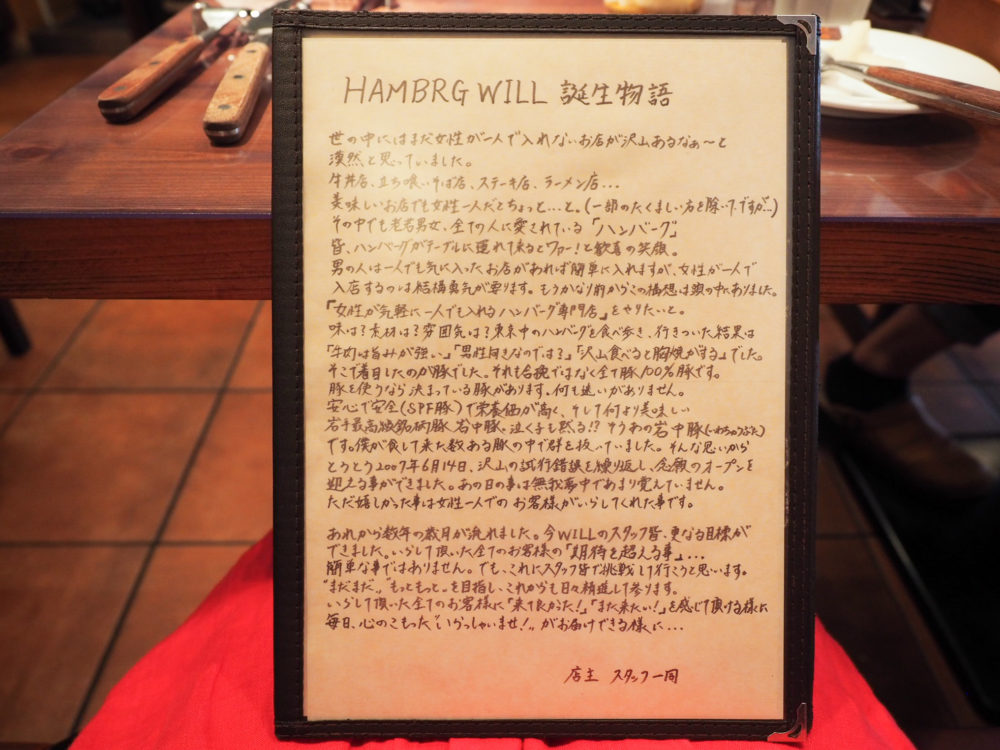 HAMBRG WILL 誕生物語
世の中にはまだ女性が一人で入れないお店が沢山あるなぁ〜と
漠然と思っていました。
牛丼店、立ち喰いそば店、ステーキ店、ラーメン店...
美味しいお店でも女性一人だとちょっと...と。(一部のたくましい方を除いて、ですが...)
その中でも老若男女、全ての人に愛されている「ハンバーグ」
皆、ハンバーグがテーブルに運れて来るとワァー!と歓喜の笑顔。
男の人は一人でも気に入ったお店があれば簡単に入れますが、女性が一人で
入店するのは結構勇気が要ります。もうかなり前からこの構想は頭の中にありました。
「女性が気軽に一人でも入れるハンバーグ専門店」をやりたいと。
味は?素材は?雰囲気は?東京中のハンバーグを食べ歩き、行きついた結果は
「牛肉は旨みが強い」「男性向きなのでは?」「沢山食べると胸焼がする」でした。
そこで着目したのが豚でした。それも合挽ではなく全て豚100%豚です。
豚を使うなら決まっている豚があります。何も迷いがありません。
安心で安全(SPF豚)で栄養価が高く、そして何より美味しい
岩手最高級銘柄豚、岩中豚。泣く子も黙る!?そうあの岩中豚(いわちゅうぶた)
です。僕が食して来た数ある豚の中で群を抜いていました。そんな思いから
とうとう2007年6月14日、沢山の試行錯誤を繰り返し、念願のオープンを
迎える事ができました。あの日の事は無我夢中であまり覚えていません。
ただ嬉しかった事は女性一人でのお客様がいらしてくれた事です。
あれから数年の歳月が流れました。今WILLのスタッフ皆、更なる目標が
できました。いらして頂いた全てのお客様の「期待を超える事」...
簡単な事ではありません。でも、これにスタッフ皆で挑戦して行こうと思います。
"まだまだ"、"もっともっと"を目指し、これからも日々精進して参ります。
いらして頂いた全てのお客様に「来て良かった!」「また来たい!」を感じて頂ける様に
毎日、心のこもった"いらっしゃいませ!"がお届けできる様に...
店主 スタッフ一同